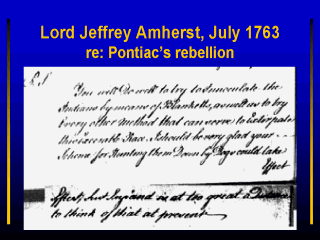 Lord Jeffrey Amherst, July 1763
re: Pontiac's rebellion
P.S.
You will Do well to try to Innoculate the
Indians by means of Blanketts, as well as to try
Every other Method that can serve to Extirpate
this Execrable Race. I should be very glad your
Scheme for Hunting them Down by Dogs could take
Effect
Effect, but England is at too great a Distance
to think of that at present